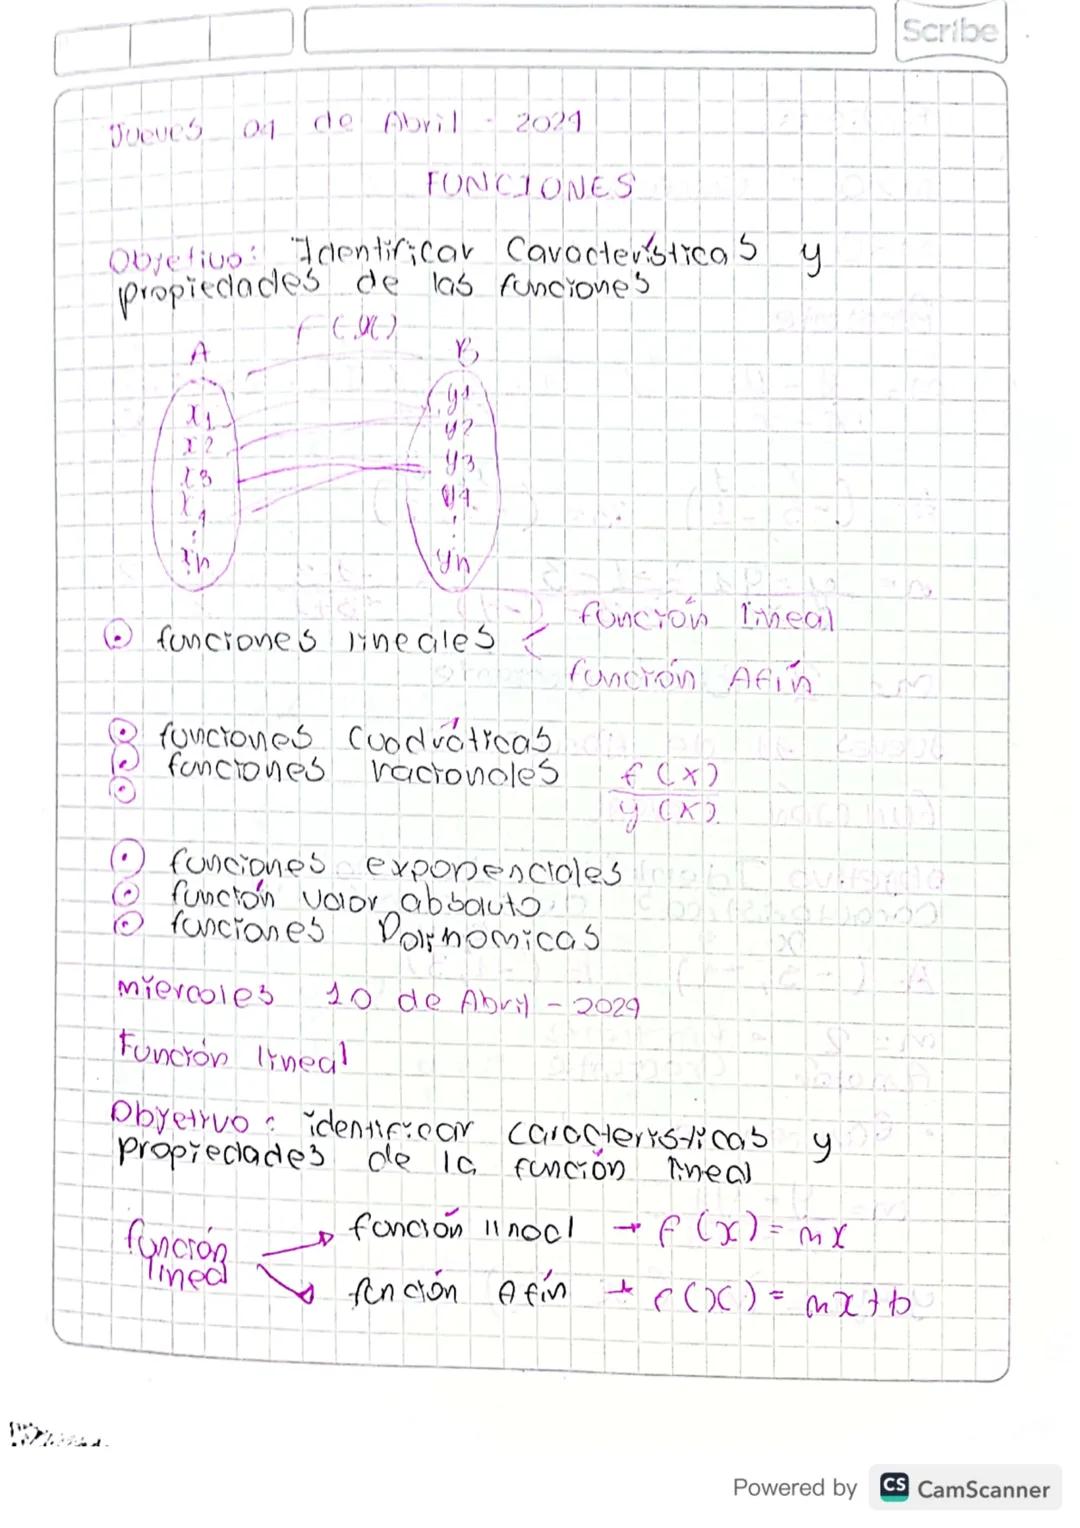 Scribe
Jueves 04 de Abril - 2024
FUNCIONES
Objetivo: Identificar Características y
propiedades de las funciones
f(x)
A B
x1 y1
x2 y2
x3 y3
x4 y4
⋮ ⋮
xn yn
función lineal
⊙ funciones lineales <
función Afín
⊙ funciones Cuadráticas
⊙ funciones racionales f(x)
⊙ y(x)
⊙ funciones exponenciales
⊙ función valor absoluto
⊙ funciones Polinomicas
miercoles 10 de Abril - 2024
Función lineal
Objetivo: identificar caracteristicas y
propiedades de la función lineal
función lineal → f(x) = mx
función
lineal
fnción Afín → f(x) = mx+b
Powered by CS CamScanner